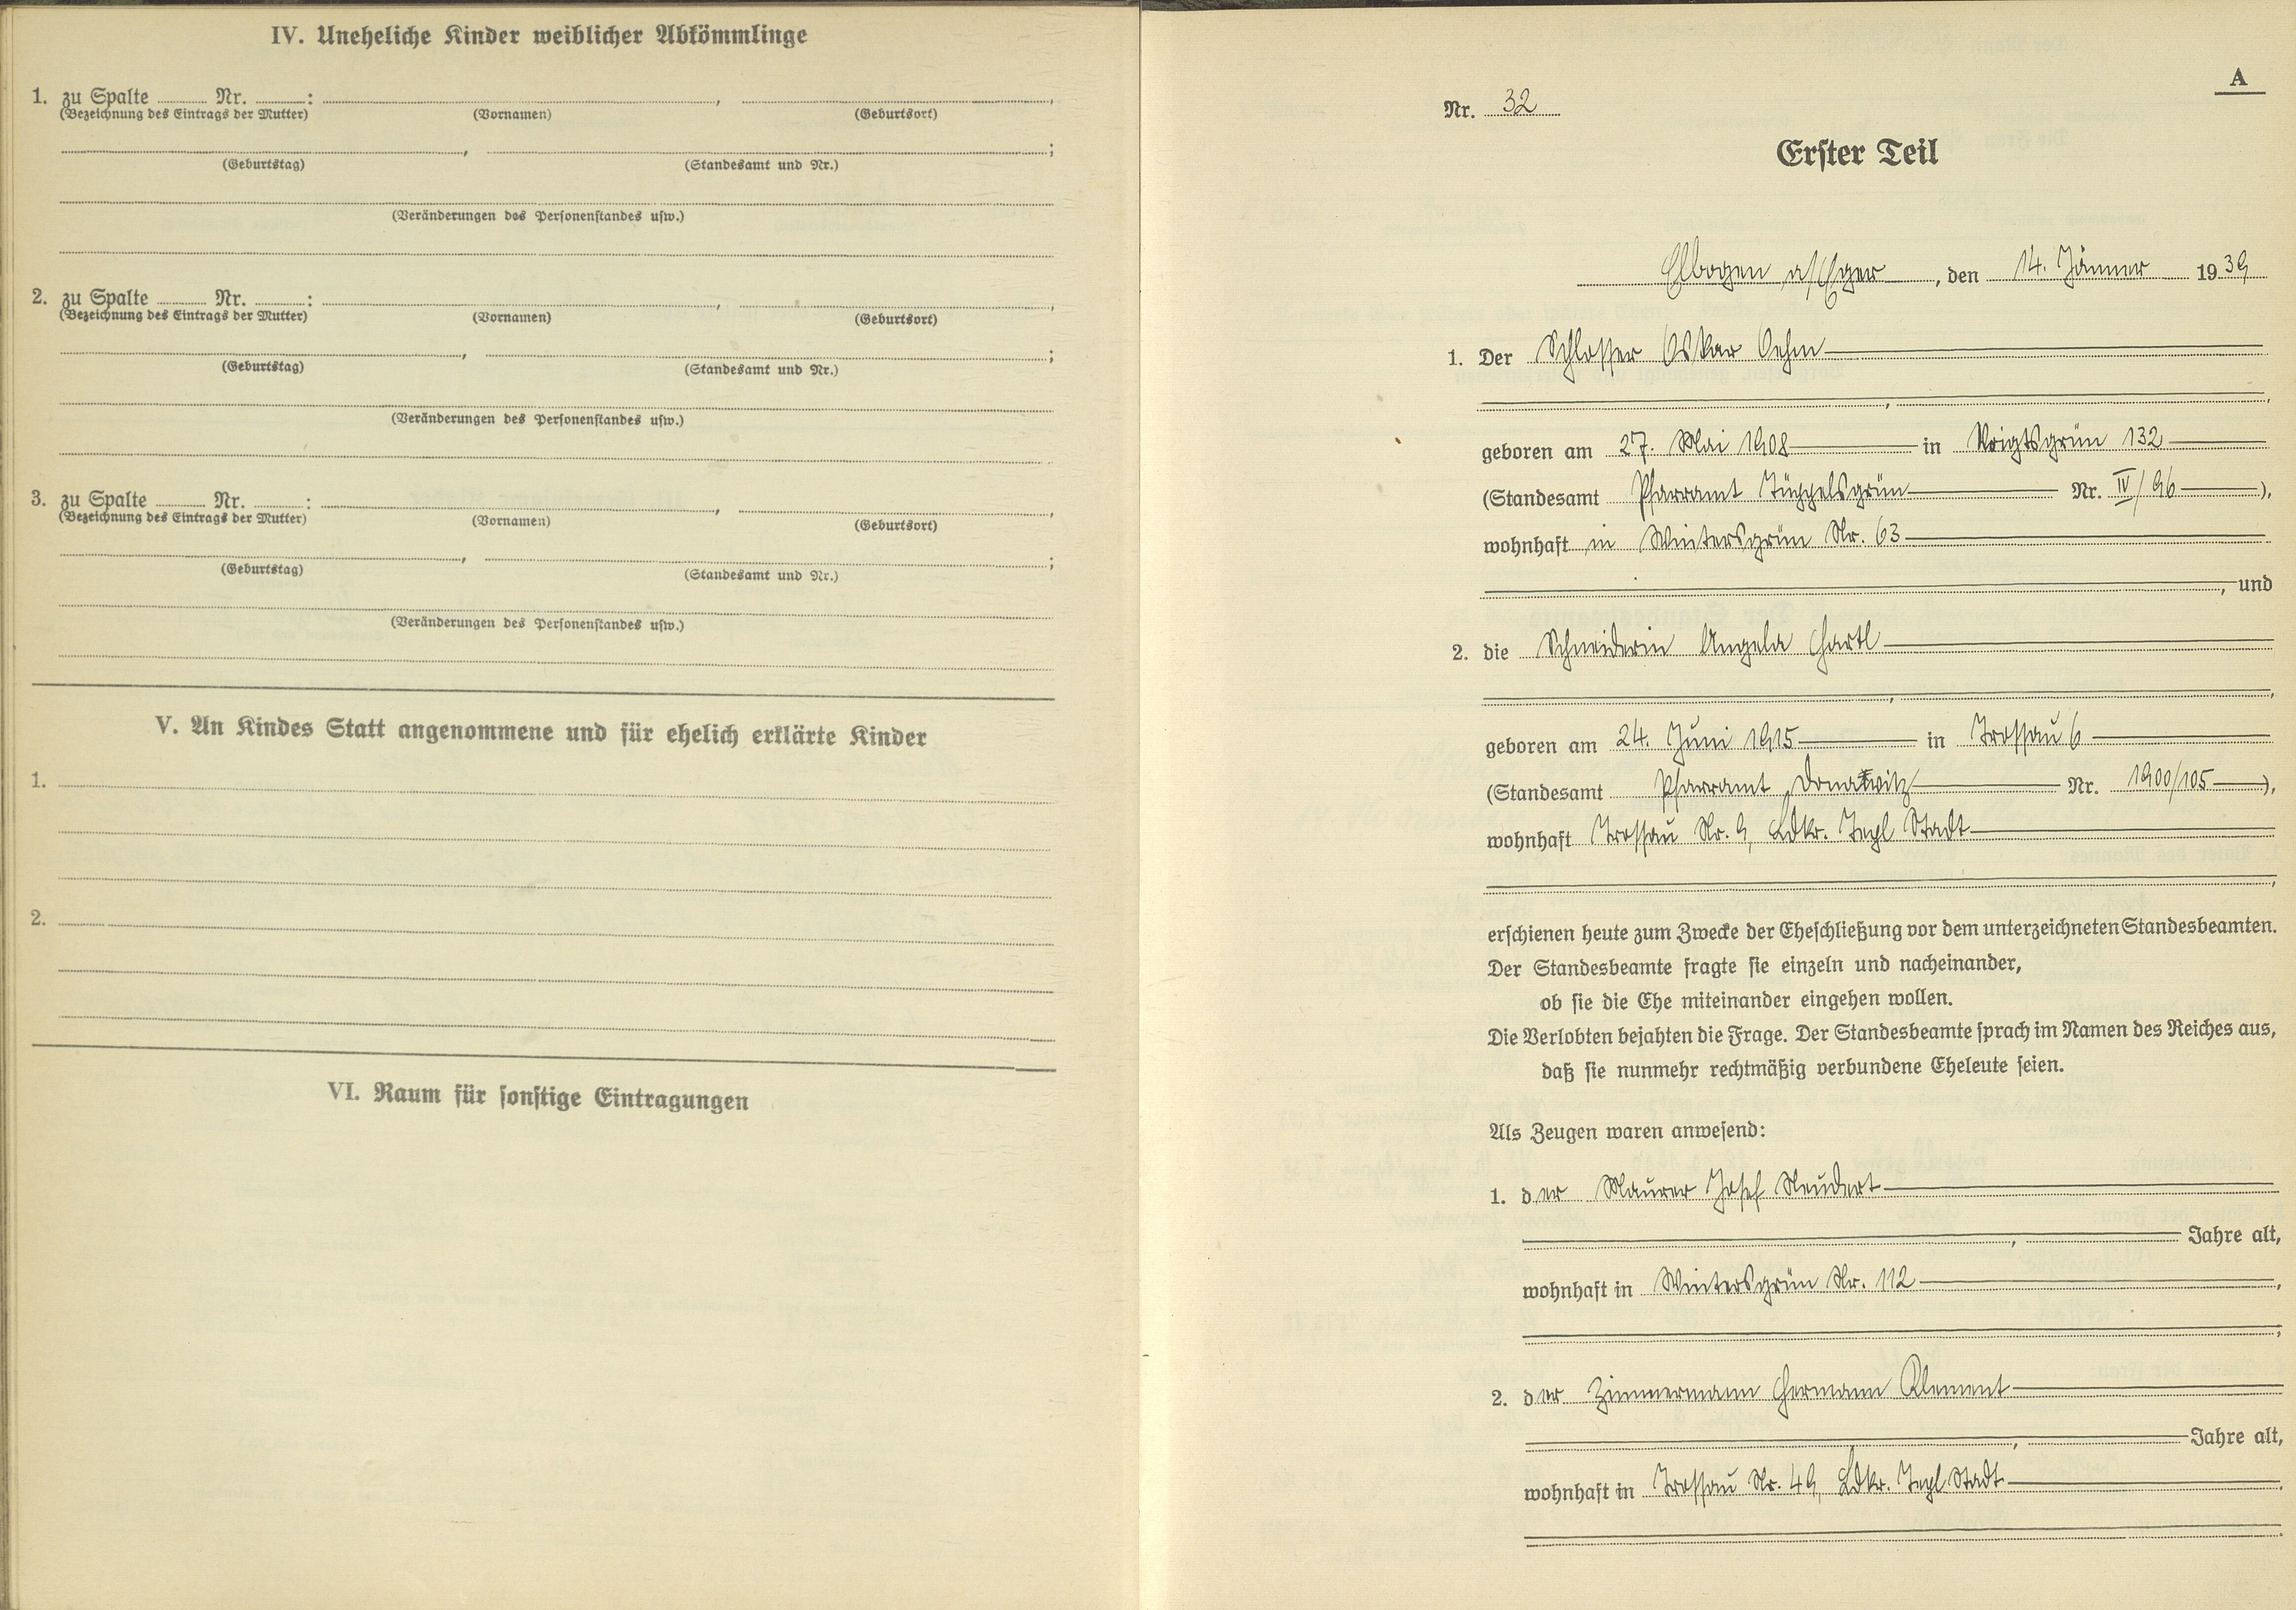 IV. Uneheliche Kinder weiblicher Abkömmlinge
1. zu Spalte ........ Nr. ........ : ........, ........,
(Bezeichnung des Eintrags der Mutter) (Vornamen) (Geburtsort)
........, ........;
(Geburtstag) (Standesamt und Nr.)
(Veränderungen des Personenstandes usw.)
2. zu Spalte ........ Nr. ........ : ........, ........,
(Bezeichnung des Eintrags der Mutter) (Vornamen) (Geburtsort)
........, ........;
(Geburtstag) (Standesamt und Nr.)
(Veränderungen des Personenstandes usw.)
3. zu Spalte ........ Nr. ........ : ........, ........,
(Bezeichnung des Eintrags der Mutter) (Vornamen) (Geburtsort)
........, ........;
(Geburtstag) (Standesamt und Nr.)
(Veränderungen des Personenstandes usw.)
V. An Kindes Statt angenommene und für ehelich erklärte Kinder
1.
2.
VI. Raum für sonstige Eintragungen
A
Nr. 32
Erster Teil
Elbogen a/Eger, den 14. Jänner 1939
1. Der Schlosser Oskar Oehm
geboren am 27. Mai 1908 in Voigtsgrün 132
(Standesamt Pfarramt Tüppelsgrün Nr. IV/96),
wohnhaft in Wintersgrün Nr. 63
, und
2. die Schneiderin Angela Hartl
geboren am 24. Juni 1915 in Trossau 6
(Standesamt Pfarramt Donawitz Nr. 1900/105),
wohnhaft Trossau Nr. 9, Ldkr. Tepl Stadt
erschienen heute zum Zwecke der Eheschließung vor dem unterzeichneten Standesbeamten.
Der Standesbeamte fragte sie einzeln und nacheinander,
ob sie die Ehe miteinander eingehen wollen.
Die Verlobten bejahten die Frage. Der Standesbeamte sprach im Namen des Reiches aus,
daß sie nunmehr rechtmäßig verbundene Eheleute seien.
Als Zeugen waren anwesend:
1. der Maurer Josef Neudert
, Jahre alt,
wohnhaft in Wintersgrün Nr. 112
2. der Zimmermann Hermann Klement
, Jahre alt,
wohnhaft in Trossau Nr. 49, Ldkr. Tepl Stadt